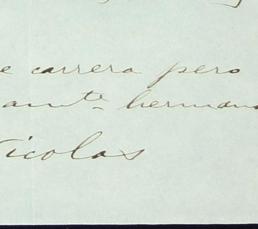 e carrera pero
amte hermano
Nicolas